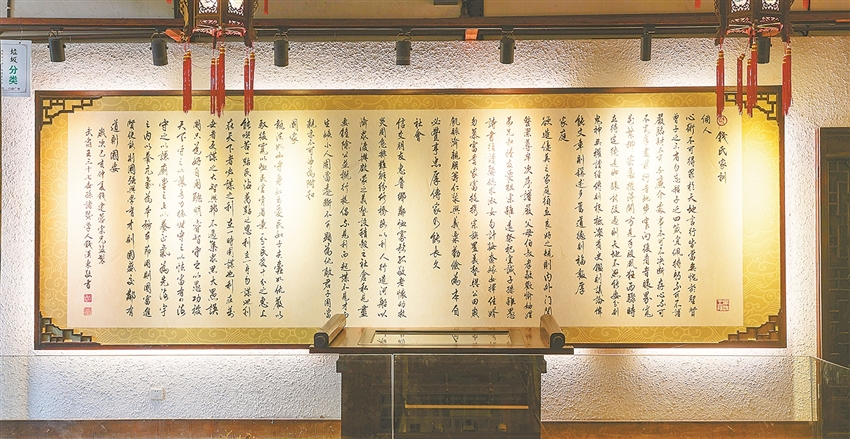 錢氏家訓
個人
心術不可得罪於天地言行皆當無愧於聖賢
曾子之三省勿忘程子之四箴宜佩持躬不可不謹
嚴臨財不可不廉介處事不可不決斷存心不可
不寬厚盡前行者地步窄向後看者眼界寬
花繁柳密處撥得開方見手段風狂雨驟時
立得定才是脚跟能改過則天地不怒能安分則
鬼神無權讀經傳則根柢深看史鑑則議論偉
能文章則稱述多蓄道德則福報厚
家庭
欲造優美之家庭須立良好之規則內外門閭
整潔尊卑次序謹嚴父母伯叔孝敬歡愉妯娌
弟兄和睦友愛祖宗雖遠祭祀宜誠子孫雖愚
詩書須讀娶媳求淑女勿計妝奩嫁女擇佳婿
勿慕富貴家富提攜宗族置義塾與公田歲
飢賑濟親朋籌仁漿與義粟勤儉為本自
必豐亨忠厚傳家乃能長久
社會
信交朋友惠普鄉鄰恤寡矜孤敬老懷幼救
災周急排難解紛修橋路以利人行造河船以
濟眾渡興啟蒙之義塾設積穀之社倉私見盡
要鏟除公益概行提倡不見利而起謀不見才而
生嫉小人固當遠斷不可顯為仇敵君子固當
親亦不可曲為附和
國家
執法如山守身如玉愛民如子去蠹如仇嚴以
馭役寬以恤民官肯著意一分民受十分之惠上
能吃苦一點民沾萬點之恩利在一身勿謀也利
在天下者必謀之利在一時固謀也利在萬
世者更謀之大智興邦不過集眾思大愚誤
國只為好自用聰明睿智守之以愚功被
天下守之以讓勇力振世守之以怯富有四海
守之以謙廟堂之上以養正氣為先海宇
之內以養元氣為本務本節用則國富進
賢使能則國強興學育才則國盛交鄰有
道則國安
錢漢東敬書
垃圾
分类